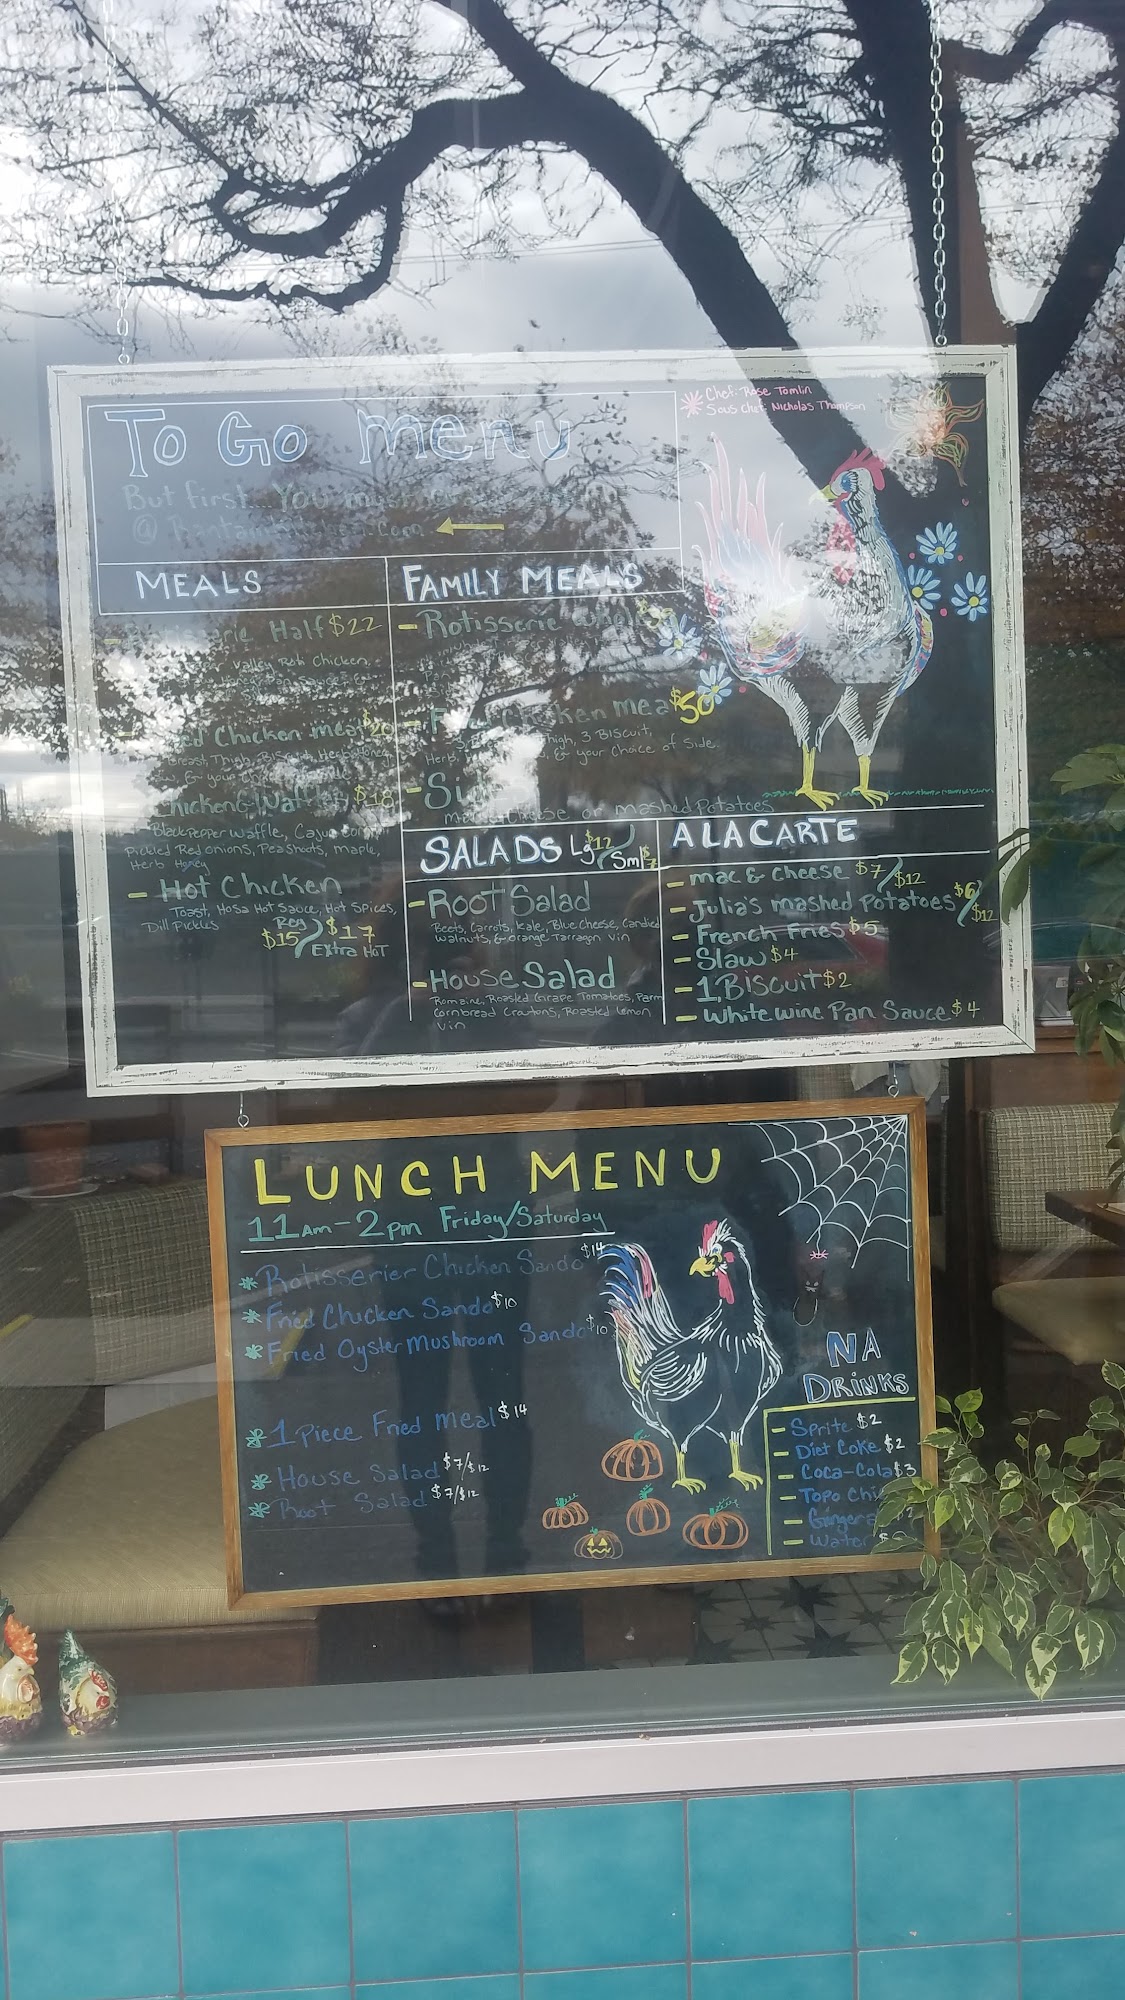 To Go menu
But first... You
MEALS
Half $22
Valley Roti Chicken,
Chicken meal $20
Breast, Thigh, Biscuit, Herb Honey,
Chicken & Waffles $18
Black Pepper Waffle, Cajun
Pickled Red onions, Peashoots, maple,
Herb Honey
- Hot Chicken
Toast, Hosa Hot Sauce, Hot Spices,
Dill Pickles
Reg $15 / $17 Extra HoT
FAMILY MEALS
- Rotisserie Whole
Chicken meal $50
Thigh, 3 BISCUIT,
Herb, & your Choice of Side.
cheese or mashed Potatoes
SALADS Lg $12 / Sml $7
- Root Salad
Beets, Carrots, kale, Blue Cheese, Candied
walnuts, & orange Tarragon vin
- House Salad
Romaine, Roasted Grape Tomatoes, Parm
Cornbread Croutons, Roasted Lemon
vin
Chef: Rose Tomlin
Sous Chef: Nicholas Thompson
A LA CARTE
- mac & cheese $7/$12
- Julia's mashed Potatoes $6/$12
- French Fries $5
- Slaw $4
- 1 Biscuit $2
- White wine Pan Sauce $4
LUNCH MENU
11Am - 2pm Friday/Saturday
* Rotisserier Chicken Sando $14
* Fried Chicken Sando $10
* Fried Oyster Mushroom Sando $10
* 1 Piece Fried meal $14
* House Salad $7/$12
* Root Salad $7/$12
NA
DRINKS
- Sprite $2
- Diet Coke $2
- Coca-Cola $3
- Topo
- Water